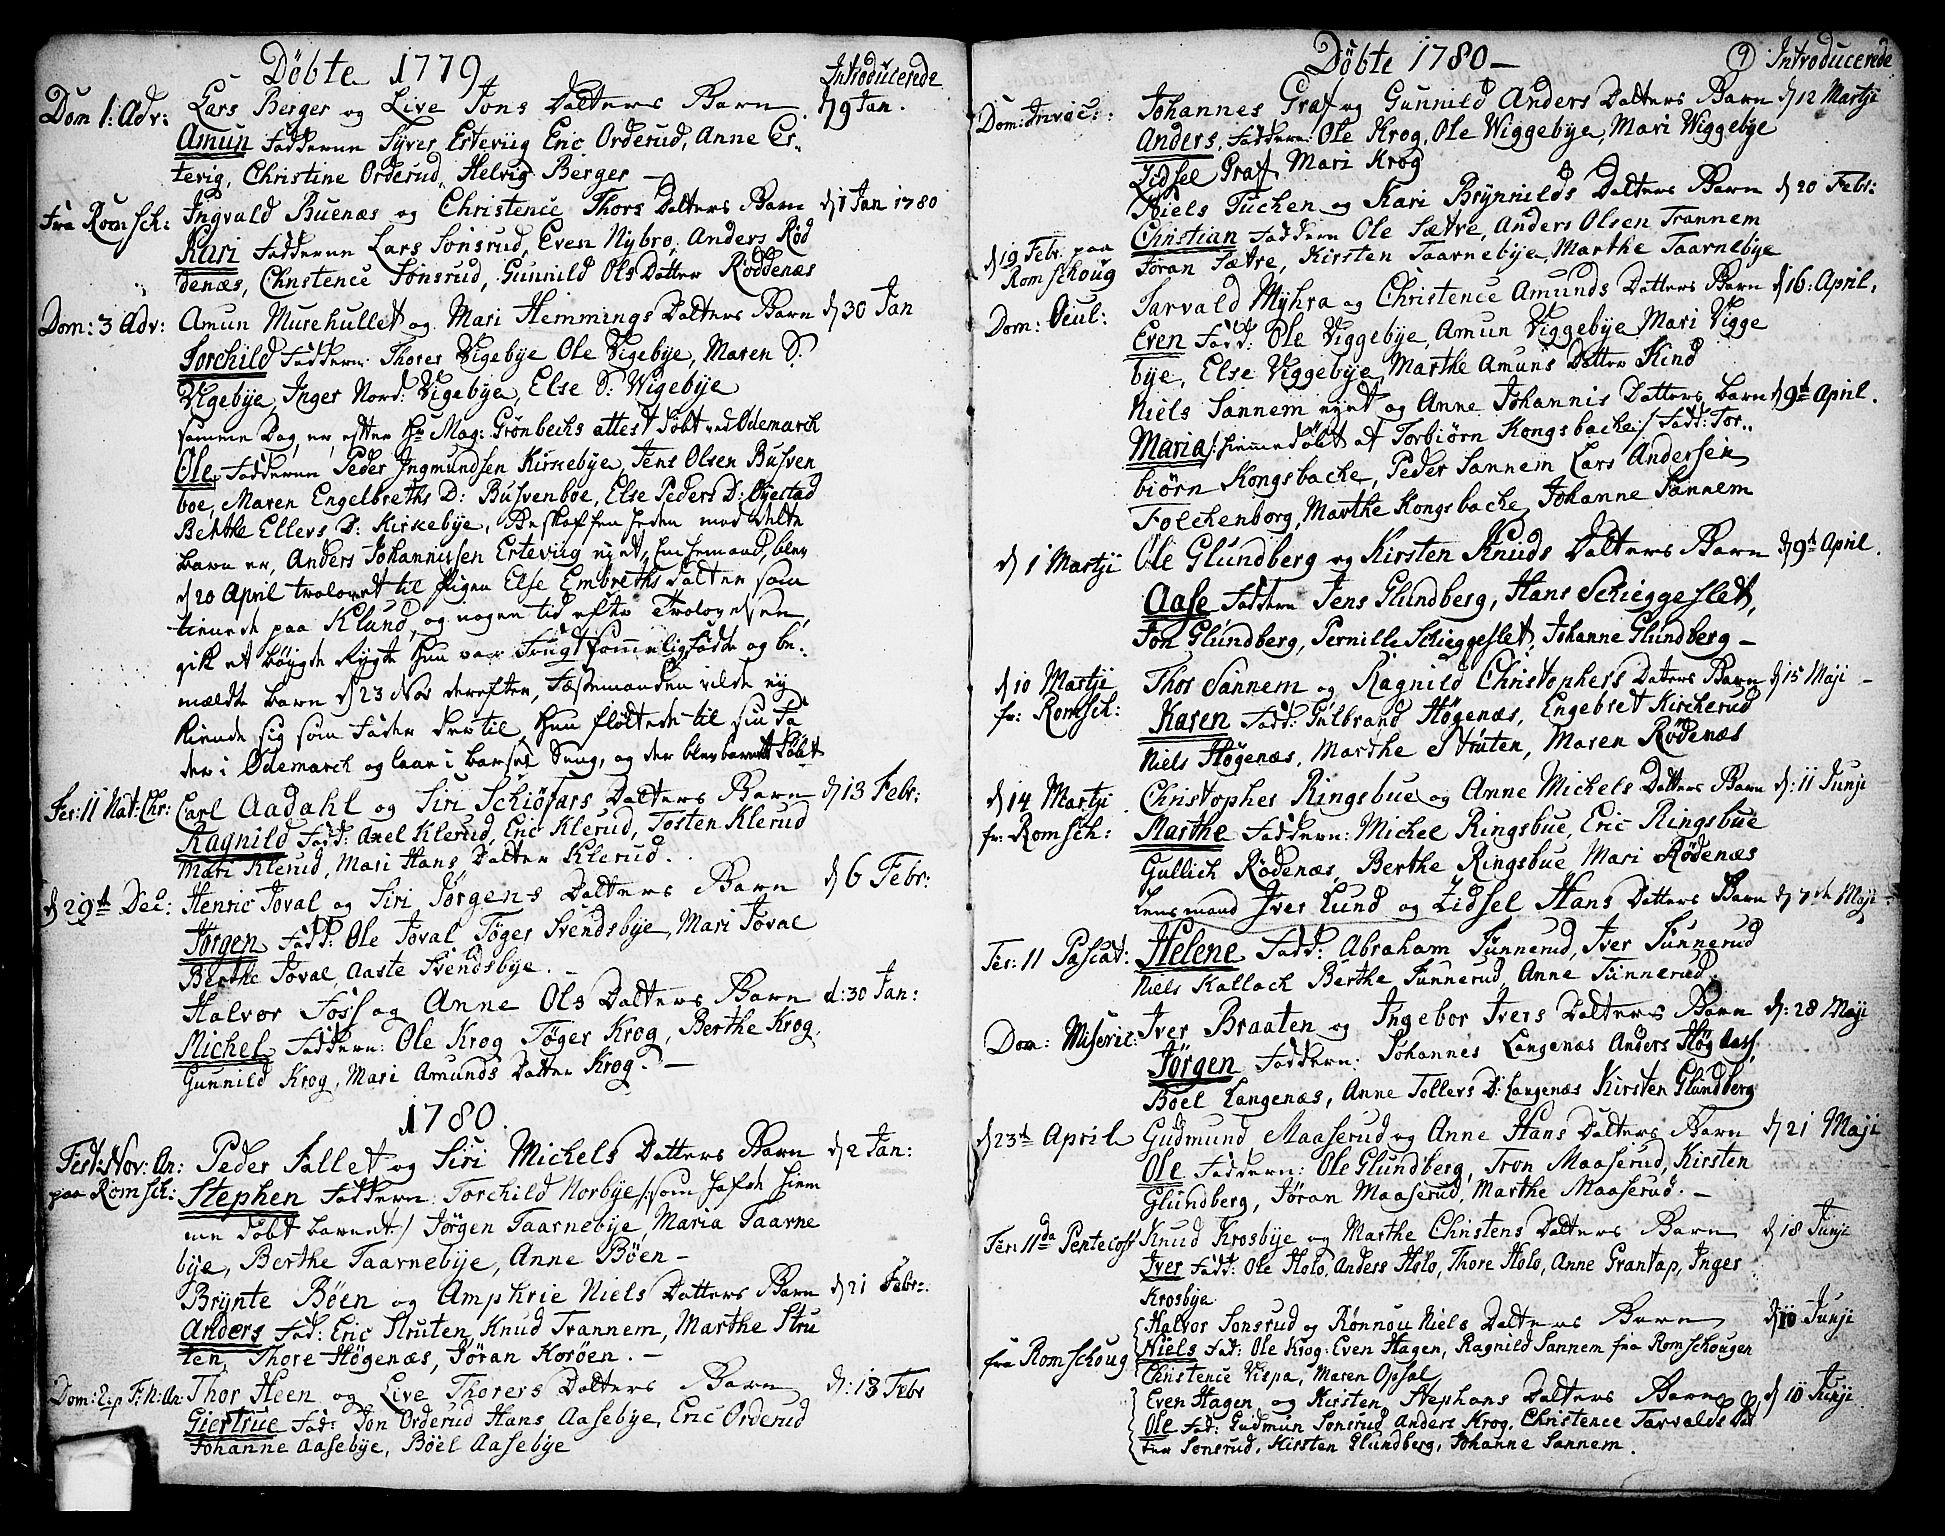 Döbte 1779
Introducerede
Dom 1: Adv: Lars Berger og Live Jons Datters Barn d 9 Jan.
Amun Fadderne Syver Ertevig Eric Orderud, Anne Er-
tevig, Christine Orderud, Helvig Berger —
Fra Romsch: Ingvald Buenæs og Christence Thors Datters Barn d 1 Jan 1780
Kari Fadderne Lars Sonsrud, Even Nybro, Anders Röd
denæs, Christence Sonsrud, Gunnild Ols Datter Röddenæs
Dom: 3 Adv: Amun Murehullet og Mari Hemmings Datters Barn d 30 Jan
Torchild Faddern: Thorer Vigebÿe Ole Vigebÿe, Maren S:
Vigebÿe, Inger Nord: Vigebÿe, Else S: Wigebÿe
samme Dag, er, efter Hr Mag: Grönbechs attest döbt ved Ödemarch
Ole, Fadderne Peder Ingmundsen Kirkebÿe, Jens Olsen Busven
boe, Maren Engelbreths D: Busvenboe, Else Peders D: Öyestad
Berthe Ellevs D: Kirkebÿe, Beskaffenheden med dette
barn er, Anders Johannissen Ertevig, blev
d 20 April trolovet til Pigen Else Embreths Datter som
tienede paa Klund, og nogen tid efter Trolovelsen,
gik et Rygte hun var og be-
mældte barn d 23 Nov derefter, Fæstemanden vilde ey
kiende sig som Fader dertil, hun flöttede til sin Fa
der i Ödemarch og laae i barsel Seng, og der blev barnet Döbt
Fer: 11 Nat: Chr: Carl Aadahl og Siri Schiöfars Datters Barn d 13 Febr:
Ragnild Fad: Axel Klerud, Eric Klerud, Tosten Klerud
Mari Klerud, Mari Hans Datter Klerud.
d 29de Dec: Henric Joval og Siri Jörgens Datters Barn d 6 Febr:
Jörgen Fadd: Ole Joval, Töger Svendsbÿe, Mari Joval
Berthe Joval, Aaste Svendsbÿe. —
Halvor Foss og Anne Ols Datters Barn d: 30 Jan:
Michel Faddern: Ole Krog Töger Krog, Berthe Krog,
Gunnild Krog, Mari Amunds Datter Krog. —
1780.
Fest: Nov: An: Peder Fallet og Siri Michels Datters Barn d 2 Jan:
paa Romsch: Stephen Faddern: Torchild Norbÿe /: som hafde hiem
me döbt barnet :/ Jörgen Taarnebÿe, Maria Taarne
bÿe, Berthe Taarnebÿe, Anne Böen —
Brÿnte Böen og Amphrie Niels Datters Barn d 21 Febr:
Anders Fad: Eric Struten, Knud Trannem, Marthe Stru
ten, Thore Högenæs, Jöran Koröen. —
Dom: 2: p F: N: An: Thor Heen og Live Thorers Datters Barn d: 13 Febr
Giertrue Fad: Jon Orderud Hans Aasebÿe, Eric Orderud
Johanne Aasebÿe, Böel Aasebÿe
Döbte 1780 —
9 Introducerede
Dom: Invoc: Johannes Graf og Gunnild Anders Datters Barn d 12 Martji
Anders, Faddern: Ole Krog, Ole Wiggebÿe, Mari Wiggebye
Zidsel Graf Mari Krog
Niels Tuchen og Kari Brÿnnilds Datters Barn d 20 Febr:
d 19 Febr. paa Romschoug Christian Faddern Ole Sætre, Anders Olsen Trannem
Jöran Sætre, Kirsten Taarnebÿe, Marthe Taarnebÿe
Dom: Ocul: Tarvald Mÿhra og Christence Amunds Datters Barn d 16: April.
Even Fadd: Ole Viggebÿe, Amun Viggebÿe Mari Vigge
bÿe, Else Viggebÿe Marthe Amuns Datter Kind
Niels Sannem og Anne Johannis Datters barn d 9de April.
Maria /: hiemmedöbt af Torbiörn Kongsbache :/ Fadd: Tor-
biörn Kongsbache, Peder Sannem Lars Andersen
Folchenborg, Marthe Kongsbache, Johanne Sannem
d 1 Martji Ole Glundberg og Kirsten Knuds Datters Barn d 9de April.
Aase Faddern Jens Glundberg, Hans Schieggeslet,
Jon Glundberg, Pernille Schieggeslet, Johanne Glundberg —
d 10 Martji Thor Sannem og Ragnild Christophers Datters Barn d 15 Maji —
fr: Romsch: Karen Fadd: Gulbrand Högenæs, Engebret Kircherud
Niels Högenæs, Marthe Struten, Maren Rödenæs
d 14 Martji Christopher Ringsbue og Anne Michels Datters Barn d: 11 Junji
fr: Romsch: Marthe Faddern: Michel Ringsbue, Eric Ringsbue
Gullich Rödenæs, Berthe Ringsbue, Mari Rödenæs
Lensmand Iver Lund og Zidsel Hans Datters Barn d 7de Maji
Fer: 11 Pascat: Helene Fadd: Abraham Funnerud, Iver Funnerud
Niels Kallach Berthe Funnerud, Anne Funnerud.
Dom: Miseric: Iver Braaten og Ingebor Ivers Datters Barn d: 28 Maji
Jörgen Faddern: Johannes Langenæs Anders
Böel Langenæs, Anne Tollers D: Langenæs Kirsten Glundberg
d 23de April Gudmund Maaserud og Anne Hans Datters Barn d 21 Maji
Ole Faddern: Ole Glundberg, Tron Maaserud, Kirsten
Glundberg, Jöran Maaserud, Marthe Maaserud. —
Fer: 11da Pentecost Knud Krosbÿe og Marthe Christens Datters Barn d 18 Junji
Iver Fad: Ole Holo, Anders Holo, Thore Holo, Anne Grantap, Inger
Krosbÿe
Halvor Sonsrud og Rönnou Niels Datters Barn d 10 Junji
fra Romschoug Niels Fad: Ole Krog, Even Hagen, Ragnild Sannem fra Romschougen
Christence Vispa, Maren Opsal
Even Hagen, og Kirsten Stephans Datters Barn d 10 Junji
Ole Fad: Gudmun Sonsrud, Anders Krog, Christence Tarvalds Dat
ter Sonsrud, Kirsten Glundberg, Johanne Sannem.